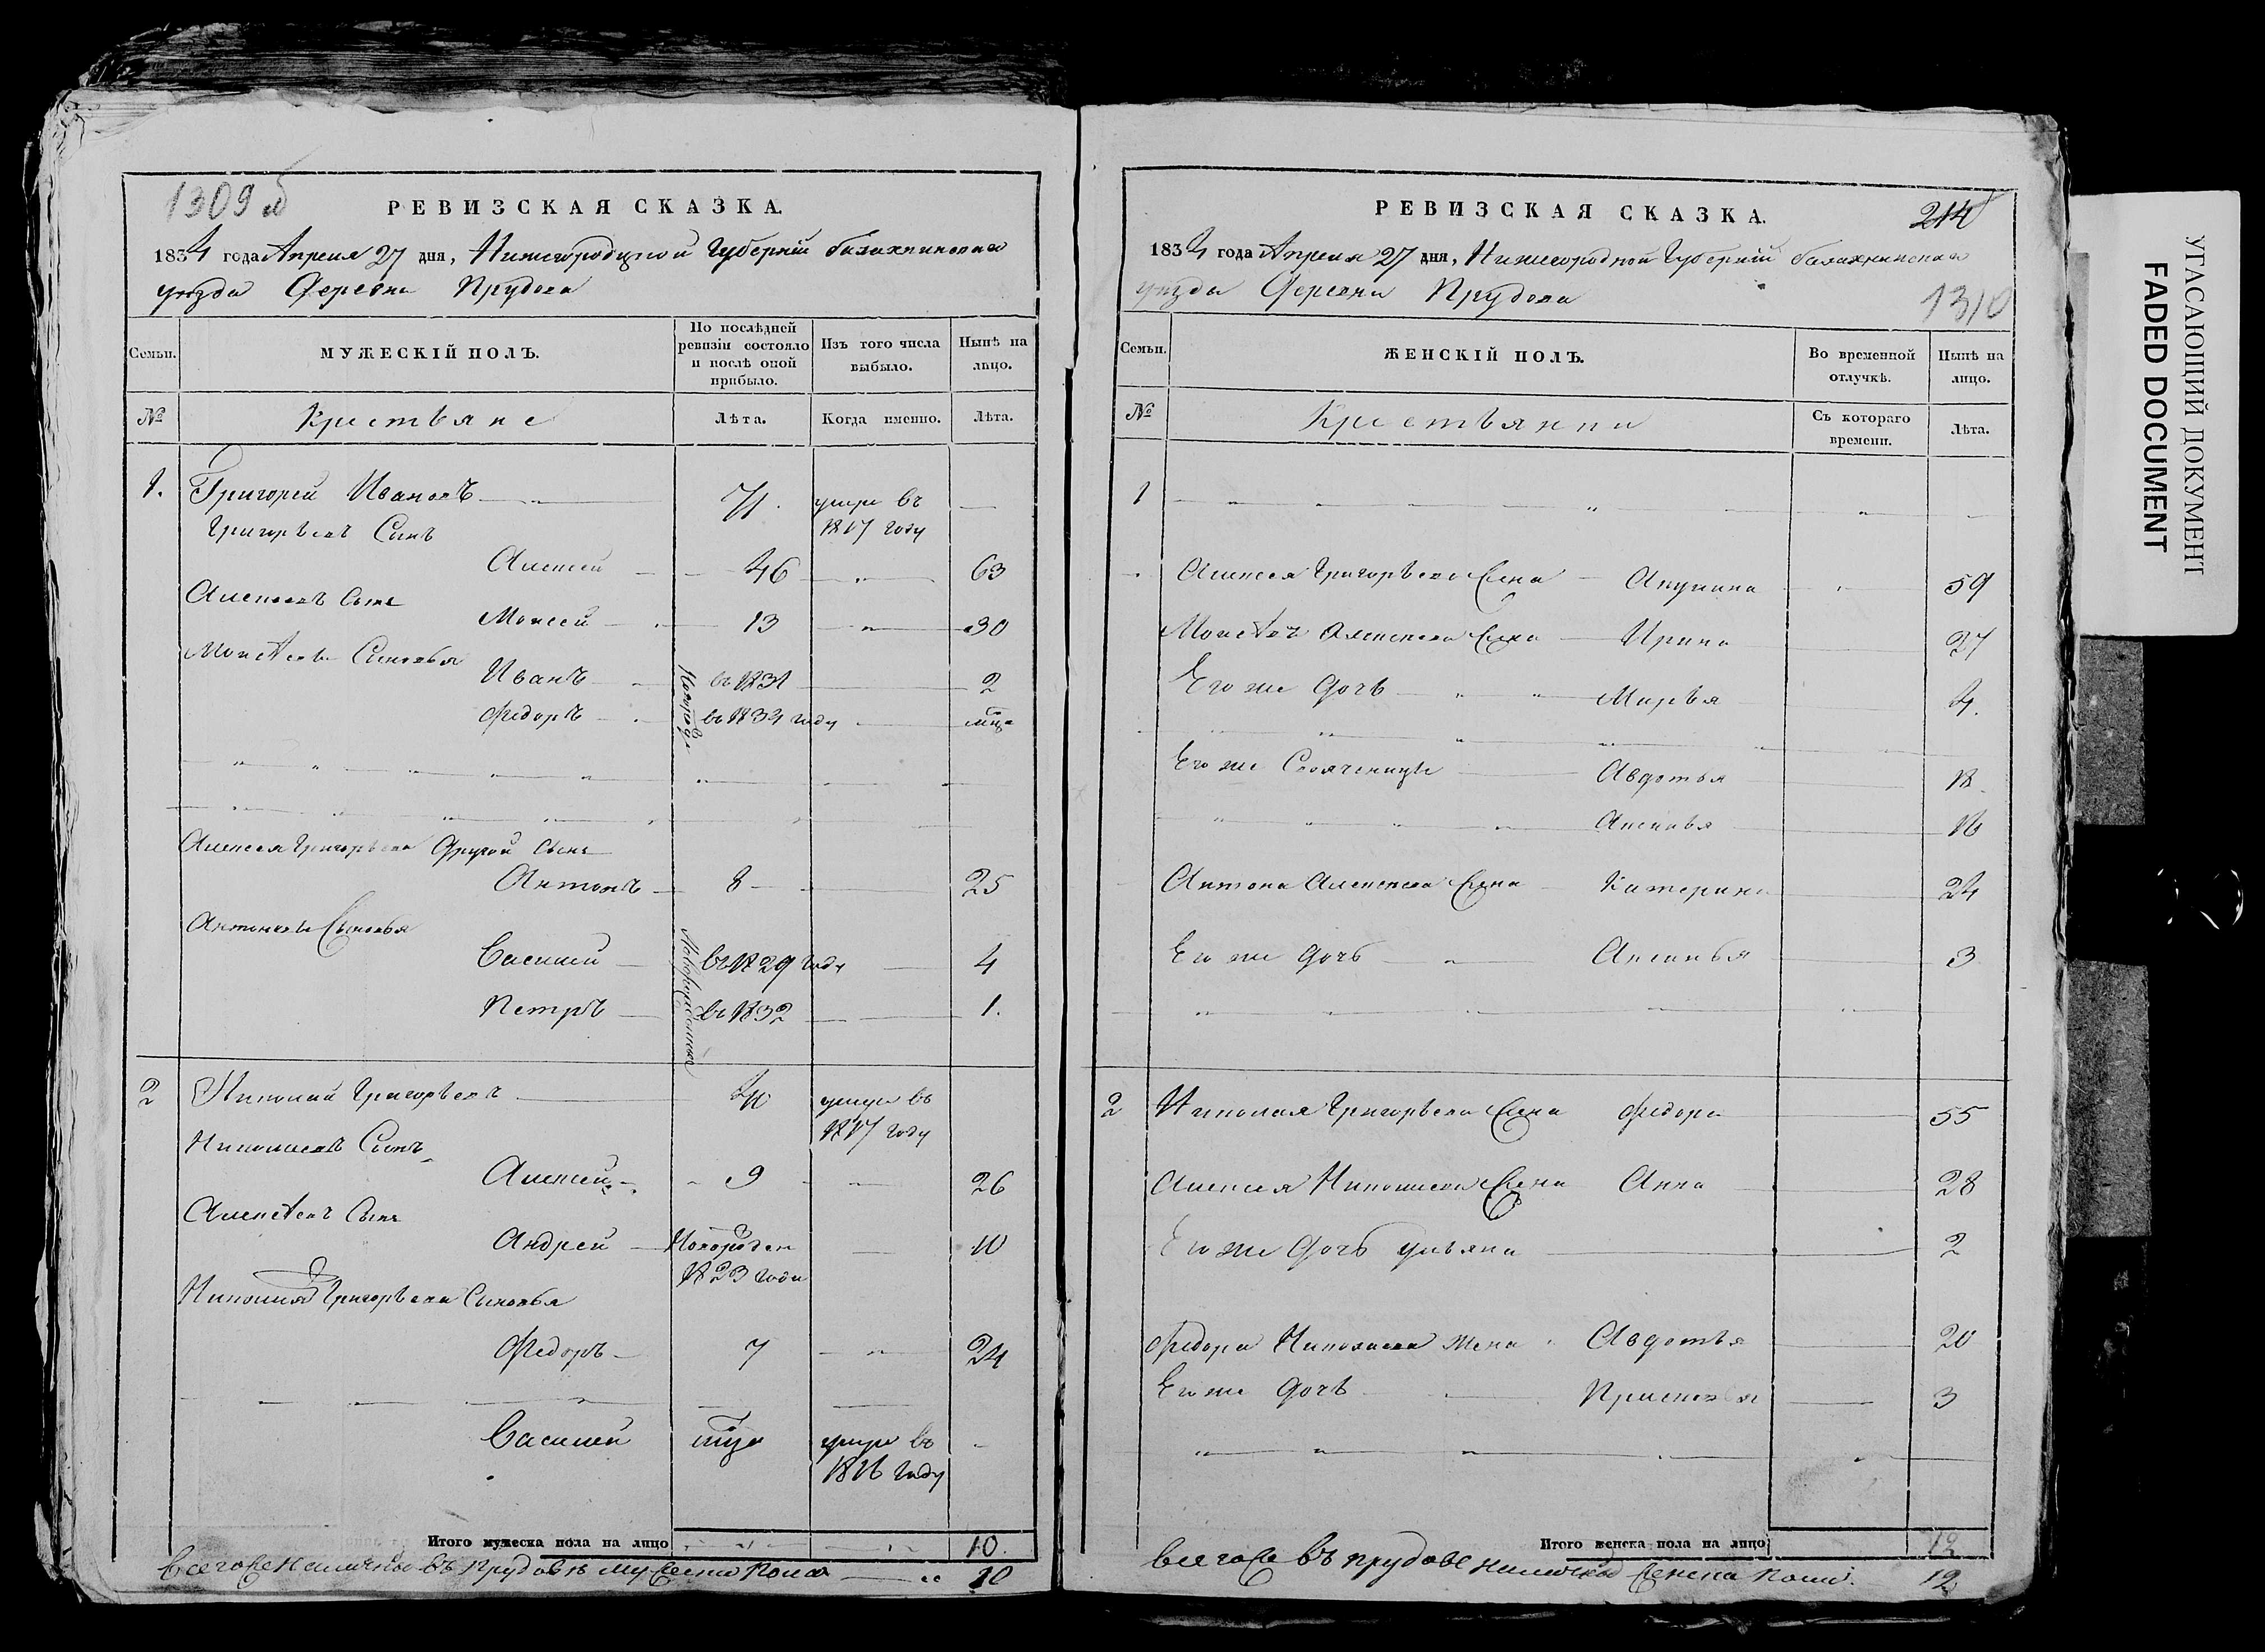 1309 об
РЕВИЗСКАЯ СКАЗКА.
1834 года Апреля 27 дня, Нижегородцкой Губерніи балахнинскаго
уѣзда Деревни Прудова
Семьи.
МУЖЕСКІЙ ПОЛЪ.
По послѣдней ревизіи состояло и послѣ оной прибыло.
Изъ того числа выбыло.
Нынѣ на лицо.
№
Крестьяне
Лѣта.
Когда именно.
Лѣта.
1. Григорей Ивановъ 71. умре въ 1817 году
Григорьевъ Сынъ
Алексей 46 63
Алексеевъ Сынъ
Моисей 13 30
Моисѣевы Сыновья
Иванъ въ 1831 2
Новорожд
Федоръ въ 1834 году
Алексея Григорьева Другой сынъ
Антонъ 8 25
Антоновы Сыновья
Василий въ 1829 году 4
Петръ въ 1832 1.
2 Николай Григорьевъ 40 умре въ 1817 году
Николаевъ Сынъ
Алексей 9 26
Алексѣевъ Сынъ
Андрей Новорожден 1823 года 10
Николая Григорьева Сыновья
Федоръ 7 24
Василей умре въ 1816 году
Итого мужеска пола на лицо 10.
Всего Наличных въ Прудовѣ мужеска Пола 10
РЕВИЗСКАЯ СКАЗКА.
214
1834 года Апреля 27 дня, Нижегородской Губерніи балахнинскаго
уѣзда Деревни Прудова
1310
Семьи.
ЖЕНСКІЙ ПОЛЪ.
Во временной отлучкѣ.
Нынѣ на лицо.
№
Крестьянки
Съ котораго времени.
Лѣта.
1
Алексея Григорьева Жена Акулина 59
Моисѣя Алексеева Жена Ирина 27
Его же Дочь Марья 4.
Его же Своячени́цы Авдотья 18
Аксинья 16
Антона Алексеева Жена Катерина 24
Его же Дочь Аксинья 3
2 Николая Григорьева Жена Федора 55
Алексея Николаева Жена Анна 28
Его же Дочь Ульяна 2
Федора Николаева Жена Авдотья 20
Его же Дочь Прасковья 3
Итого женска пола на лицо 12
Всего въ прудове наличных женска пола. 12
УГАСАЮЩИЙ ДОКУМЕНТ
FADED DOCUMENT